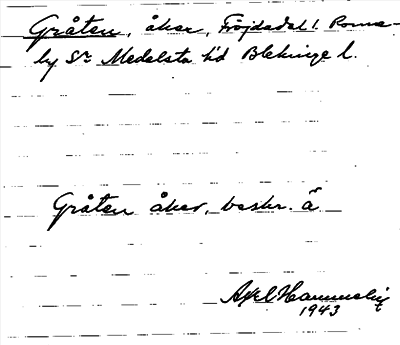 Gråten, åker, Fröjdadal 1 Ronne-
by Sn Medelsta hd Blekinge l.
Gråten åker, beskr. å
Axel
1943